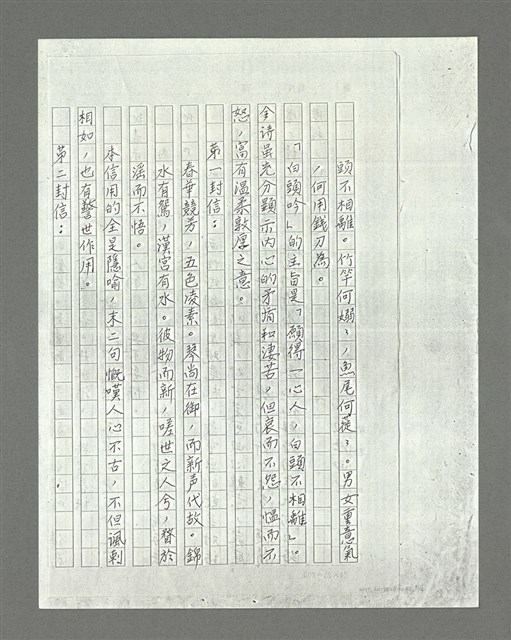 頭不相離。竹竿何嫋〻，魚尾何蓰〻。男女重意氣
，何用錢刀為。
「白頭吟」的主旨是「願得一心人，白頭不相離」。
全诗虽充分顯示內心的矛盾和淒苦，但哀而不怨，慍而不
怒，富有溫柔敦厚之意。
第一封信：
春華競芳，五色凌素。琴尚在御，而新声代故。錦
水有鴛，漢宮有水。彼物而新，嗟世之人兮，瞀於
淫而不悟。
本信用的全是隱喻，末二句慨嘆人心不古，不但諷刺
相如，也有警世作用。
第二封信：